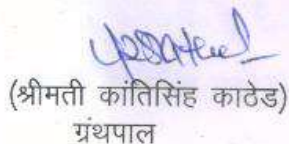 (श्रीमती कांतिसिंह काठेड)
ग्रंथपाल